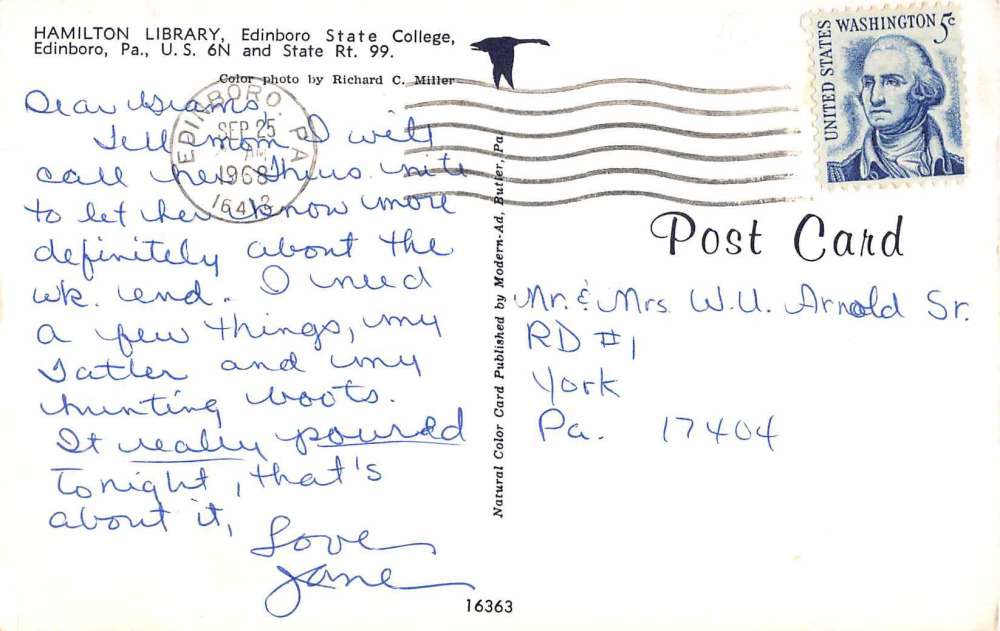 HAMILTON LIBRARY, Edinboro State College,
Edinboro, Pa., U. S. 6N and State Rt. 99.
Color photo by Richard C. Miller
Dear Grams
Tell mom I will
call her Thurs. nite
to let her know more
definitely about the
wk. end. I need
a few things, my
Tatler and my
hunting boots.
It really poured
Tonight, that's
about it,
Love
Jane
EDINBORO PA
SEP 25
AM
1968
16412
Natural Color Card Published by Modern-Ad, Butler, Pa.
16363
UNITED STATES WASHINGTON 5c
Post Card
Mr. & Mrs. W.U. Arnold Sr.
RD #1
York
Pa. 17404